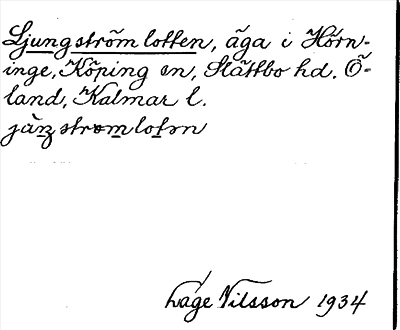 Ljungströmlotten, äga i Hörn-
inge, Köping sn, Slättbo hd. Ö-
land, Kalmar l.
jàŋstrømlotən
Låge Nilsson 1934